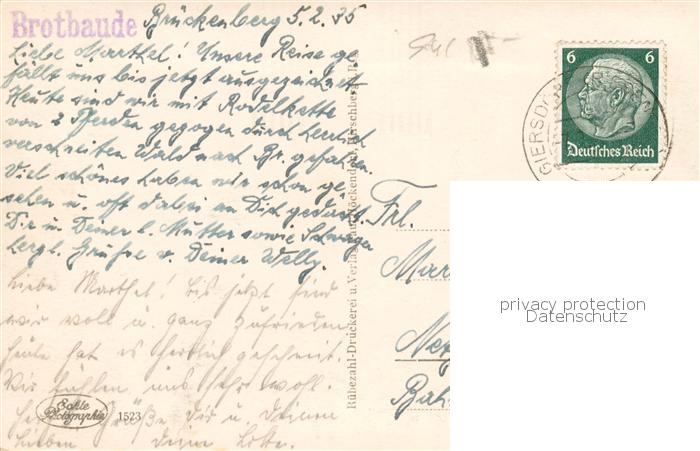 Brotbaude
Brückenberg 5.2.35
Liebe Marthel! Unsere Reise ge
fällt uns bis jetzt ausgezeichnet
Heute sind wir mit Rodelkette
von 2 Pferden gezogen durch herrlich
verschneiten Wald nach Br. gefahren.
Viel schönes haben wir schon ge
sehen u. oft dabei an Dich gedacht.
Dir u. Deiner l. Mutter sowie Schwager
herzl. Grüße v. Deiner Welly.
Liebe Marthel! Bis jetzt sind
wir voll u. ganz zufrieden
heute hat es herrlich geschneit.
Wir fühlen uns sehr wohl.
Grüße Dir u. Deinen
Lieben deine Lotte.
Echte
Photographie
1523
Rübezahl-Druckerei u. Verlag Hirschberg
6 6
Deutsches Reich
GIERSD
Frl.
Mar
Ba
privacy protection
Datenschutz